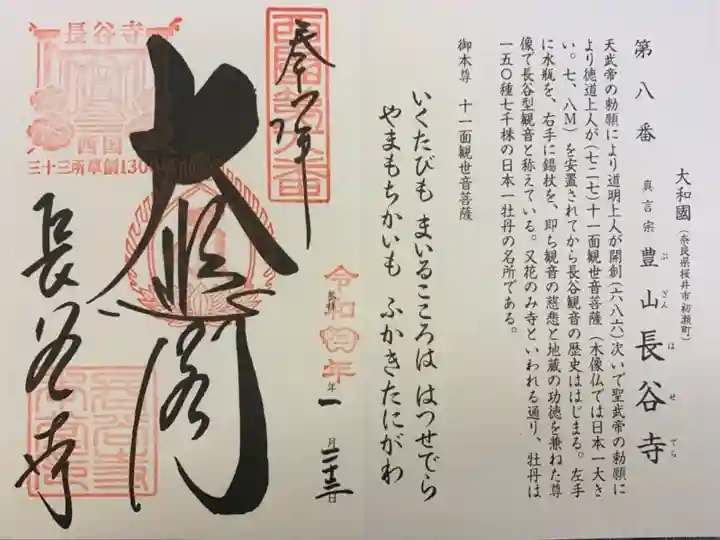 第八番
大和國(奈良県桜井市初瀬町)
真言宗 豊山長谷寺
ぶざん はせでら
天武帝の勅願により道明上人が開創(六八六)次いで聖武帝の勅願に
より徳道上人が(七二七)十一面観世音菩薩(木像仏では日本一大き
い。七、八M)を安置されてから長谷観音の歴史ははじまる。左手
に水瓶を、右手に錫杖を、即ち観音の慈悲と地蔵の功徳を兼ねた尊
像で長谷型観音と称えている。又花のみ寺といわれる通り、牡丹は
一五〇種七千株の日本一牡丹の名所である。
御本尊 十一面観世音菩薩
いくたびも まいるこころは はつせでら
やまもちかいも ふかきたにがわ
奉拝
大悲閣
長谷寺
令和四年
年一月二十三日
長谷寺
西国
三十三所草創1300年